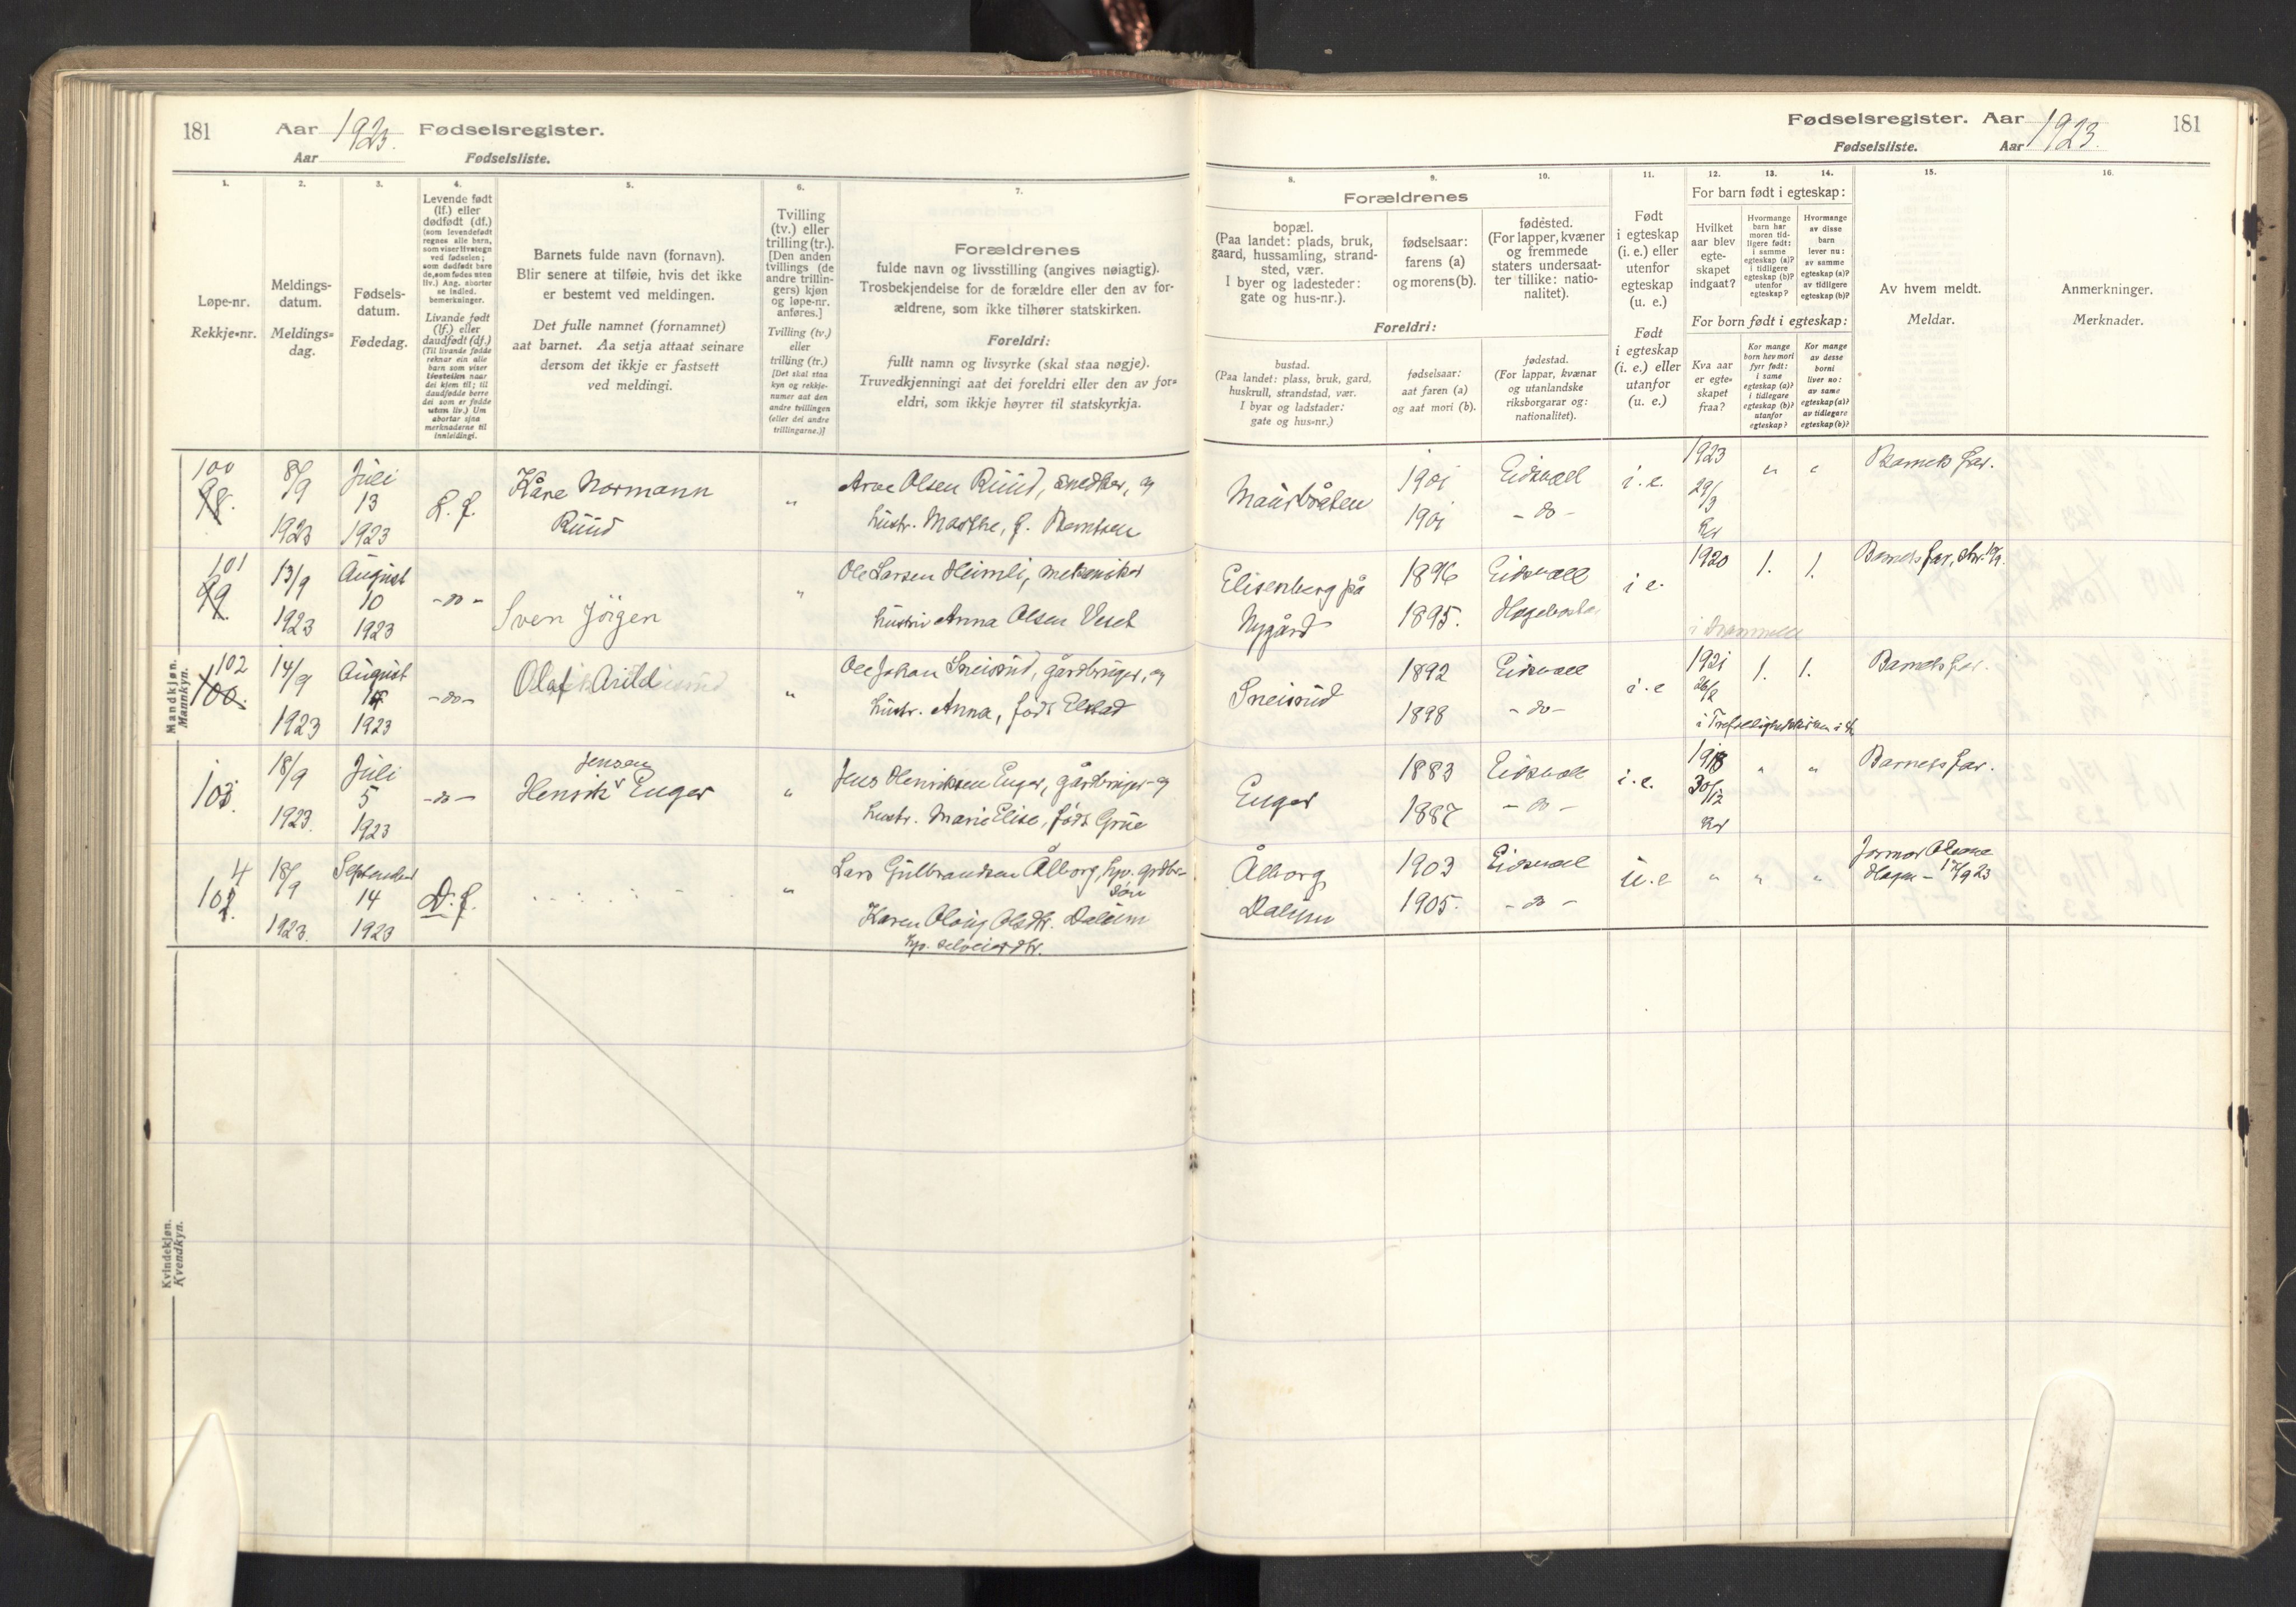 181 Aar 1923. Fødselsregister.
Aar Fødselsliste.
1. 2. 3. 4. 5. 6. 7.
Løpe-nr.
Rekkje-nr.
Meldings-
datum.
Meldings-
dag.
Fødsels-
datum.
Fødedag.
Levende født
(lf.) eller
dødfødt (df.)
(som levendefødt
regnes alle barn,
som viser livstegn
ved fødselen;
som dødfødt bare
de, som fødes uten
liv.) Ang. aborter
se indled.
bemerkninger.
Livande født
(lf.) eller
daudfødt (df.)
(Til livande fødde
reknar ein alle
barn som viser
livsteikn naar
dei kjem til; til
daudfødde berre
dei som er fødde
utan liv.) Um
abortar sjaa
merknaderne til
innleidingi.
Barnets fulde navn (fornavn).
Blir senere at tilføie, hvis det ikke
er bestemt ved meldingen.
Det fulle namnet (fornamnet)
aat barnet. Aa setja attaat seinare
dersom det ikkje er fastsett
ved meldingi.
Tvilling
(tv.) eller
trilling (tr.).
[Den anden
tvillings (de
andre trillin-
gers) kjøn
og løpe-nr.
anføres.]
Tvilling (tv.)
eller
trilling (tr.)
[Det skal staa
kyn og rekkje-
numer aat den
andre tvillingen
(eller dei andre
trillingarne.)]
Forældrenes
fulde navn og livsstilling (angives nøiagtig).
Trosbekjendelse for de forældre eller den av for-
ældrene, som ikke tilhører statskirken.
Foreldri:
fullt namn og livsyrke (skal staa nøgje).
Truvedkjenningi aat dei foreldri eller den av for-
eldri, som ikkje høyrer til statskyrkja.
Mandkjøn.
Mannkyn.
100
98.
8/9
1923
Juli
13
1923
L. f.
Kåre Normann
Ruud
"
Arve Olsen Ruud, snedker, og
hustr. Marthe, f. Berntsen
101
99.
13/9
1923
August
10
1923
-do-
Sven Jörgen
"
Ole Larsen Heimli, mekaniker
hustru Anna Olsen
102
100.
14/9
1923
August
1923
-do-
Olaf Arild
"
Ole Johan Sneisrud, gårdbruger, og
hustr. Anna, født Elstad
103.
18/9
1923.
Juli
5
1923
-do-
Jensen
Henrik Enger
"
Jens Henriksen Enger, gårdbruger og
hustr. Marie Elise, født Grue
4
102.
18/9
1923.
September
14
1923
D. f.
"
Lars Gulbrandsen Ålborg, hp. grdbr.
søn
Karen Olsdtr. Dalum
hp. selveierdtr.
Kvindekjøn.
Kvendkyn.
Fødselsregister. Aar 1923. 181
Fødselsliste. Aar
8. 9. 10. 11. 12. 13. 14. 15. 16.
Forældrenes
bopæl.
(Paa landet: plads, bruk,
gaard, hussamling, strand-
sted, vær.
I byer og ladesteder:
gate og hus-nr.).
fødselsaar:
farens (a)
og morens (b).
fødested.
(For lapper, kvæner
og fremmede
staters undersaat-
ter tillike: natio-
nalitet).
Foreldri:
bustad.
(Paa landet: plass, bruk, gard,
huskrull, strandstad, vær.
I byar og ladstader:
gate og hus-nr.)
fødselsaar:
aat faren (a)
og aat mori (b).
fødestad.
(For lappar, kvænar
og utanlandske
riksborgarar og:
nationalitet).
Født
i egteskap
(i. e.) eller
utenfor
egteskap
(u. e.)
Født
i egteskap
(i. e.) eller
utanfor
(u. e.)
For barn født i egteskap:
Hvilket
aar blev
egte-
skapet
indgaat?
Hvormange
barn har
moren tid-
ligere født:
i samme
egteskap (a)?
i tidligere
egteskap (b)?
utenfor
egteskap?
Hvormange
av disse
barn
lever nu:
av samme
egteskap (a)?
av tidligere
egteskap (b)?
For born født i egteskap:
Kva aar
er egte-
skapet
fraa?
Kor mange
born hev mori
fyrr født:
i same
egteskap (a)?
i tidlegare
egteskap (b)?
utanfor
egteskap?
Kor mange
av desse
borni
liver no:
av same
egteskap (a)?
av tidlegare
egteskap (b)?
Av hvem meldt.
Meldar.
Anmerkninger.
Merknader.
Maurbråten
1901
1901
Eidsvoll
-do-
i. e.
1923
29/3
Kr
"
"
Barnets far.
Elisenberg på
Nygård
1896
1895.
Eidsvoll
i e.
1920
i Drammen
1.
1.
Barnets far,
Sneisrud
1892
1898
Eidsvoll
-do-
i. e
1921
26/2
1.
1.
Barnets far.
Enger
1883
1887
Eidsvoll
-do-
i. e.
1918
30/12
Kr
"
"
Barnets far.
Ålborg
Dalum
1903
1905.
Eidsvoll
-do-
u. e
"
"
"
17/9 23